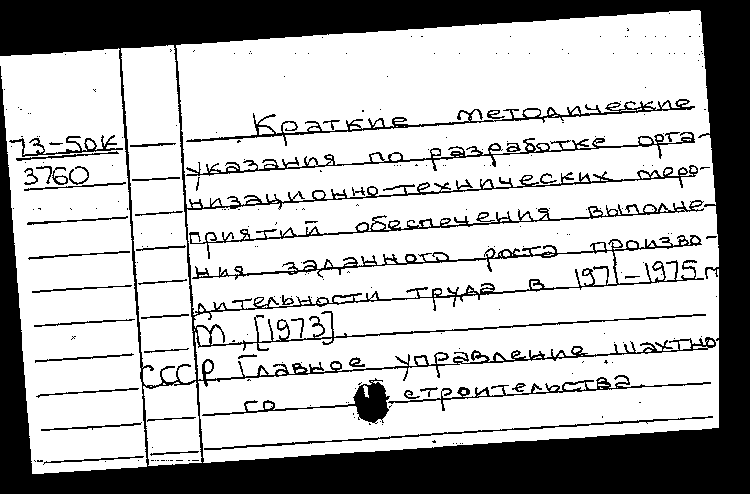 Краткие методические
73-50к
указания по разработке орга-
3760
низационно-технических меро-
приятий обеспечения выполне-
ния заданного роста произво-
дительности труда в 1971-1975 г
М., [1973].
СССР. Главное управление шахтно-
го строительства.